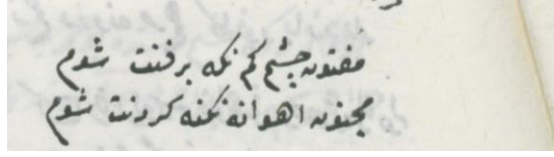 مفتون چشم کم نکه برفتنت شوم
مجنون اهوانه نکنه کردنت شوم